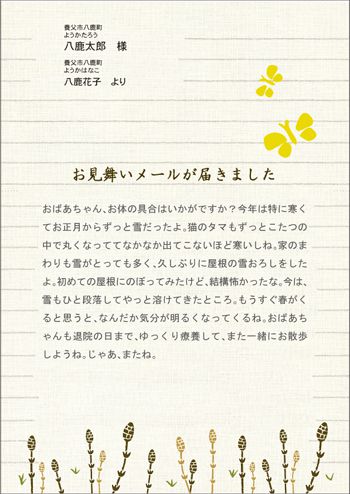 養父市八鹿町
ようかたろう
八鹿太郎　様
養父市八鹿町
ようかはなこ
八鹿花子　より
お見舞いメールが届きました
おばあちゃん、お体の具合はいかがですか？今年は特に寒く
てお正月からずっと雪だったよ。猫のタマもずっとこたつの
中で丸くなっててなかなか出てこないほど寒いしね。家のま
わりも雪がとっても多く、久しぶりに屋根の雪おろしをした
よ。初めての屋根にのぼってみたけど、結構怖かったな。今は、
雪もひと段落してやっと溶けてきたところ。もうすぐ春がく
ると思うと、なんだか気分が明るくなってくるね。おばあち
ゃんも退院の日まで、ゆっくり療養して、また一緒にお散歩
しようね。じゃあ、またね。